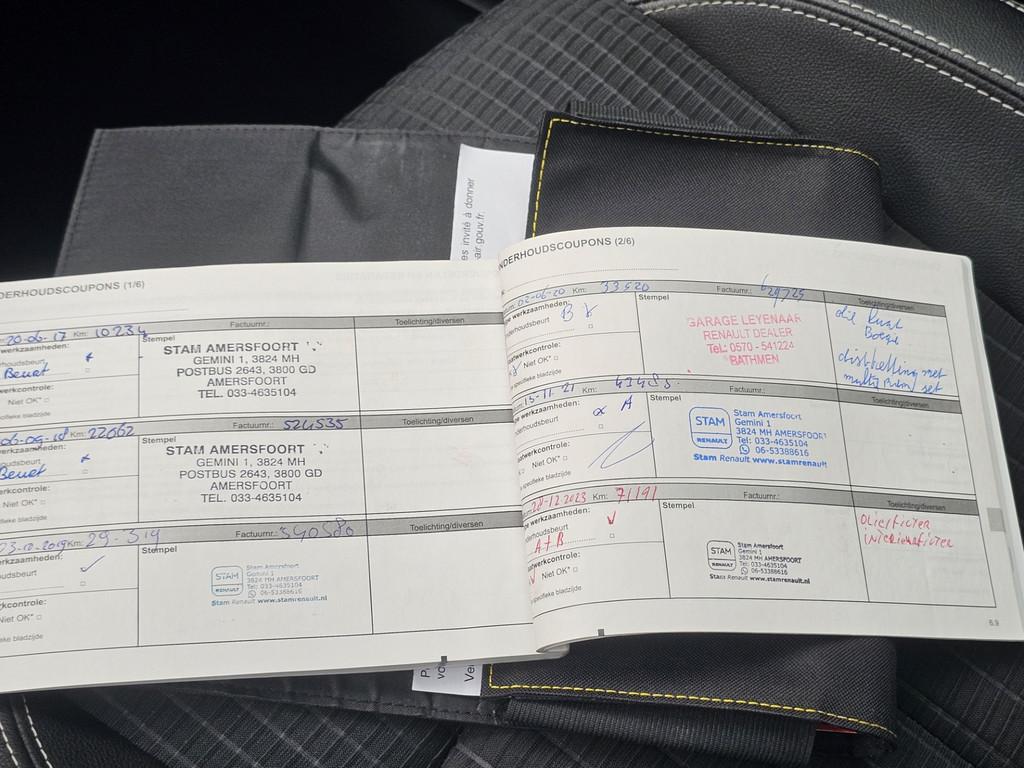 es invité à donner
air.gouv.fr.
DERHOUDSCOUPONS (1/6)
20-06-17 Km: 10234 Factuurnr.: Toelichting/diversen
werkzaamheden:
houdsbeurt
Beurt
erkcontrole:
Niet OK*
specifieke bladzijde
Stempel
STAM AMERSFOORT
GEMINI 1, 3824 MH
POSTBUS 2643, 3800 GD
AMERSFOORT
TEL. 033-4635104
06-09-18 Km: 22662 Factuurnr.: 524535 Toelichting/diversen
erkzaamheden:
oudsbeurt
Beurt
erkcontrole:
Niet OK*
fieke bladzijde
Stempel
STAM AMERSFOORT
GEMINI 1, 3824 MH
POSTBUS 2643, 3800 GD
AMERSFOORT
TEL. 033-4635104
23-10-2019 Km: 29-319 Factuurnr.: 540580 Toelichting/diversen
rkzaamheden:
oudsbeurt
kcontrole:
Niet OK*
eke bladzijde
Stempel
STAM
RENAULT
Stam Amersfoort
Gemini 1
3824 MH AMERSFOORT
Tel: 033-4635104
06-53388616
Stam Renault www.stamrenault.nl
NDERHOUDSCOUPONS (2/6)
02-06-20 Km: 33520 Factuurnr.: Toelichting/diversen
werkzaamheden:
derhoudsbeurt
B
aatwerkcontrole:
Niet OK*
specifieke bladzijde
Stempel
GARAGE LEYENAAR
RENAULT DEALER
Tel.: 0570 - 541224
BATHMEN
15-11-21 Km: 43483 Factuurnr.: Toelichting/diversen
ge werkzaamheden:
derhoudsbeurt
A
aatwerkcontrole:
Niet OK*
specifieke bladzijde
Stempel
STAM
RENAULT
Stam Amersfoort
Gemini 1
3824 MH AMERSFOORT
Tel: 033-4635104
06-53388616
Stam Renault www.stamrenault
28-12-2023 Km: 71191 Factuurnr.: Toelichting/diversen
ge werkzaamheden:
derhoudsbeurt
A+B
atwerkcontrole:
Niet OK*
specifieke bladzijde
Stempel
STAM
RENAULT
Stam Amersfoort
Gemini 1
3824 MH AMERSFOORT
Tel: 033-4635104
06-53388616
Stam Renault www.stamrenault.nl
OLIEFILTER
INTERIEURFILTER
6.9